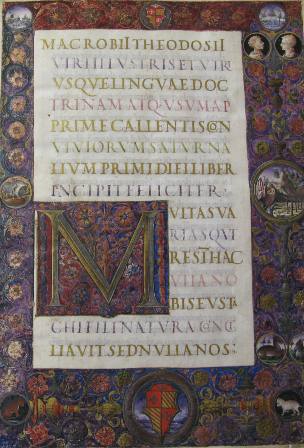 MACROBII THEODOSII
VIRI ILLUSTRIS ET VTR
VSQVE LINGVAE DOC
TRINAM ATQ VSVM AP
PRIME CALLENTIS CON
VIVIORVM SATVRNA
LIVM PRIMI DIEI LIBER
INCIPIT FELICITER
M VLTAS VA
RIASQVE
RES IN HAC
VITA NO
BIS EVST
CHI FILI NATVRA CONC
LIAVIT SED NVLLA NOS